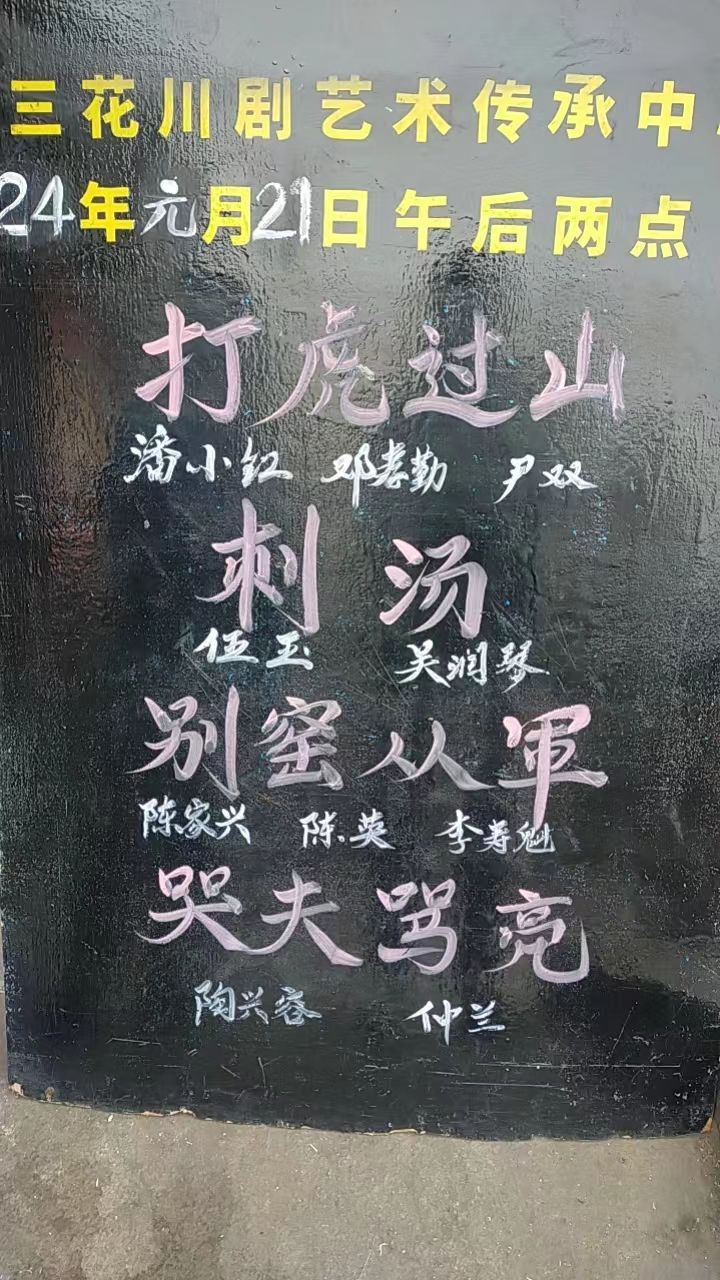 三花川剧艺术传承中
24年元月21日午后两点
打虎过山
潘小红 邓孝勤 尹双
刺汤
伍玉 吴润琴
别窑从军
陈家兴 陈英 李寿魁
哭夫骂亮
陶兴容 仲兰